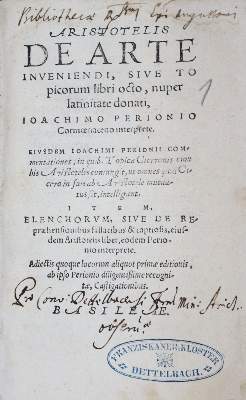 Bibliothecæ
ARISTOTELIS
DE ARTE
INVENIENDI, SIVE TO
picorum libri octo, nuper
latinitate donati,
IOACHIMO PERIONIO
Cormœriaceno interprete.
EIVSDEM IOACHIMI PERIONII COM-
mentationes, in quib. Topica Ciceronis cum
his Aristotelis coniungit, ut omnes quæ Ci-
cero in sua ab Aristotele mutua-
tus sit, intelligant.
ITEM,
ELENCHORVM, SIVE DE RE-
prehensionibus fallacibus & captiosis, eius-
dem Aristotelis liber, eodem Perio-
nio interprete.
Adiectis quoque locorum aliquot primæ editionis,
ab ipso Perionio diligentissime recogni-
tæ, Castigationibus.
Pro Conv. Dettelbacensi
BASILEAE.
FRANZISKANERKLOSTER
DETTELBACH.